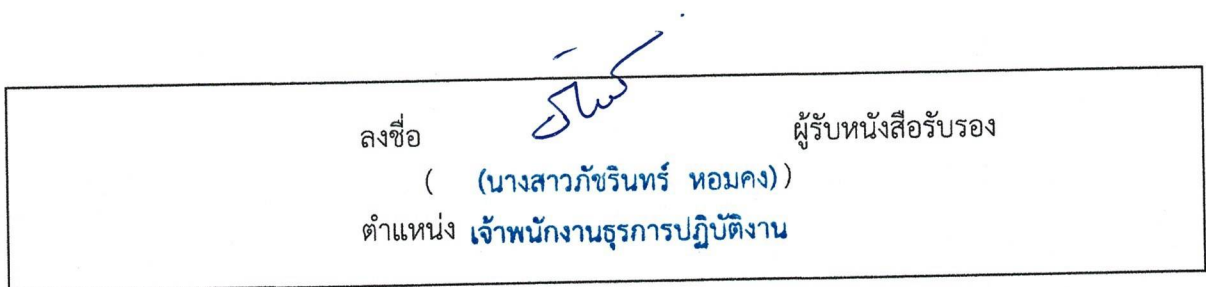 ลงชื่อ ผู้รับหนังสือรับรอง
( (นางสาวภัชรินทร์ หอมคง))
ตำแหน่ง เจ้าพนักงานธุรการปฏิบัติงาน